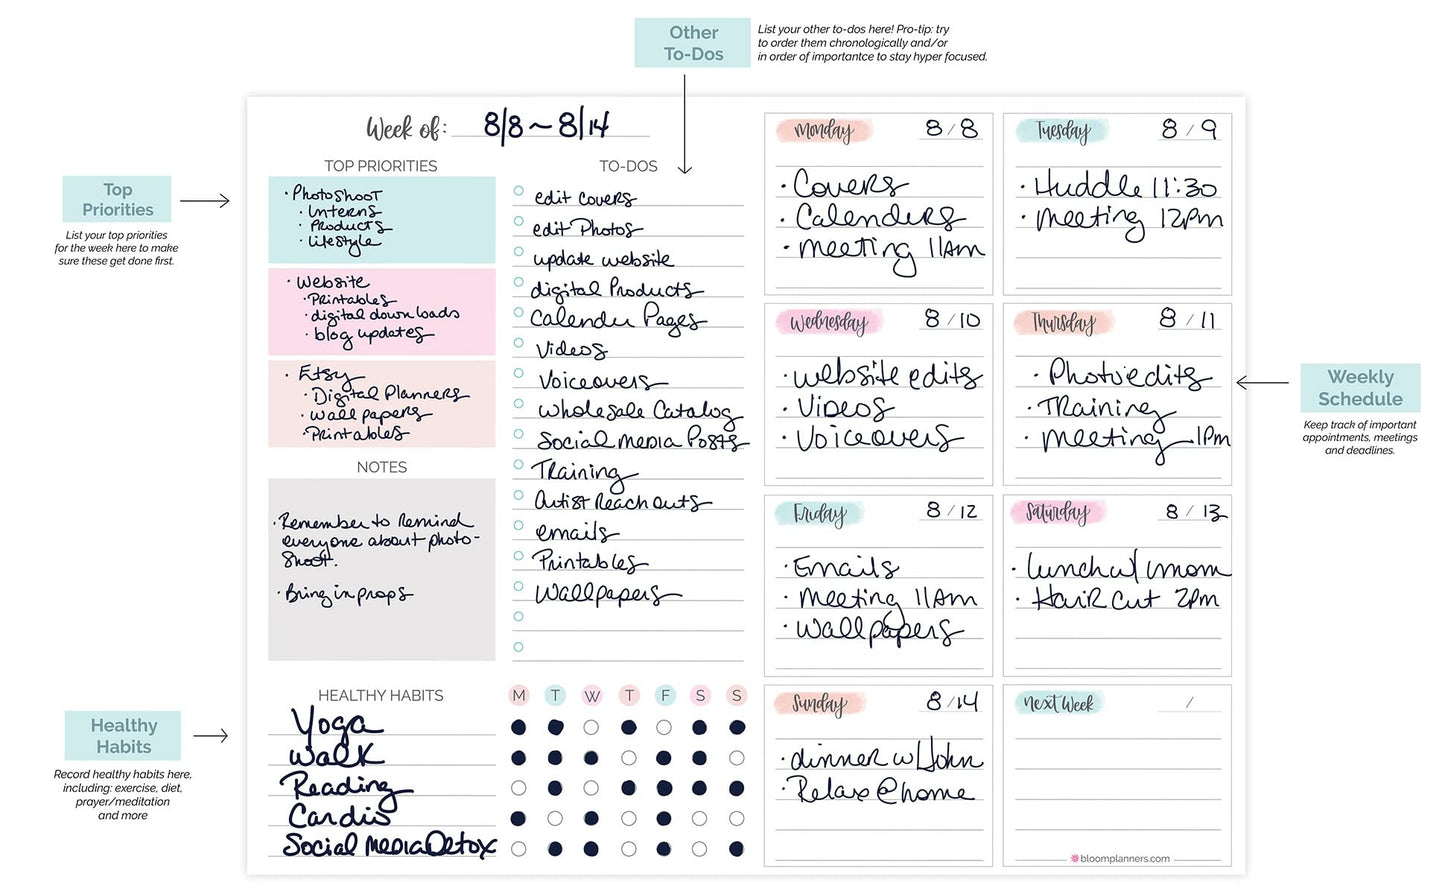 Other
To-Dos
List your other to-dos here! Pro-tip: try
to order them chronologically and/or
in order of importantce to stay hyper focused.
Top
Priorities
List your top priorities
for the week here to make
sure these get done first.
Healthy
Habits
Record healthy habits here,
including: exercise, diet,
prayer/meditation
and more
Weekly
Schedule
Keep track of important
appointments, meetings
and deadlines.
Week of: 8/8 ~ 8/14
TOP PRIORITIES
• Photoshoot
• Interns
• Products
• Lifestyle
• Website
• Printables
• digital downloads
• blog updates
• Etsy
• Digital Planners
• wallpapers
• Printables
NOTES
• Remember to Remind
everyone about photo-
shoot.
• Bring in props
TO-DOS
edit covers
edit Photos
update website
digital Products
Calender Pages
Videos
Voiceovers
wholesale Catalog
Social media Posts
Training
Artist Reach outs
emails
Printables
Wallpapers
HEALTHY HABITS M T W T F S S
Yoga
Walk
Reading
Cardio
Social Media Detox
Monday 8/8
• Covers
• Calenders
• meeting 11Am
Tuesday 8/9
• Huddle 11:30
• meeting 12pm
Wednesday 8/10
• website edits
• Videos
• Voiceovers
Thursday 8/11
• Photo edits
• Training
• meeting 1pm
Friday 8/12
• Emails
• meeting 11Am
• Wallpapers
Saturday 8/13
• Lunch w/ mom
• Hair cut 2pm
Sunday 8/14
• dinner w/ John
• Relax @ home
Next Week /
bloomplanners.com